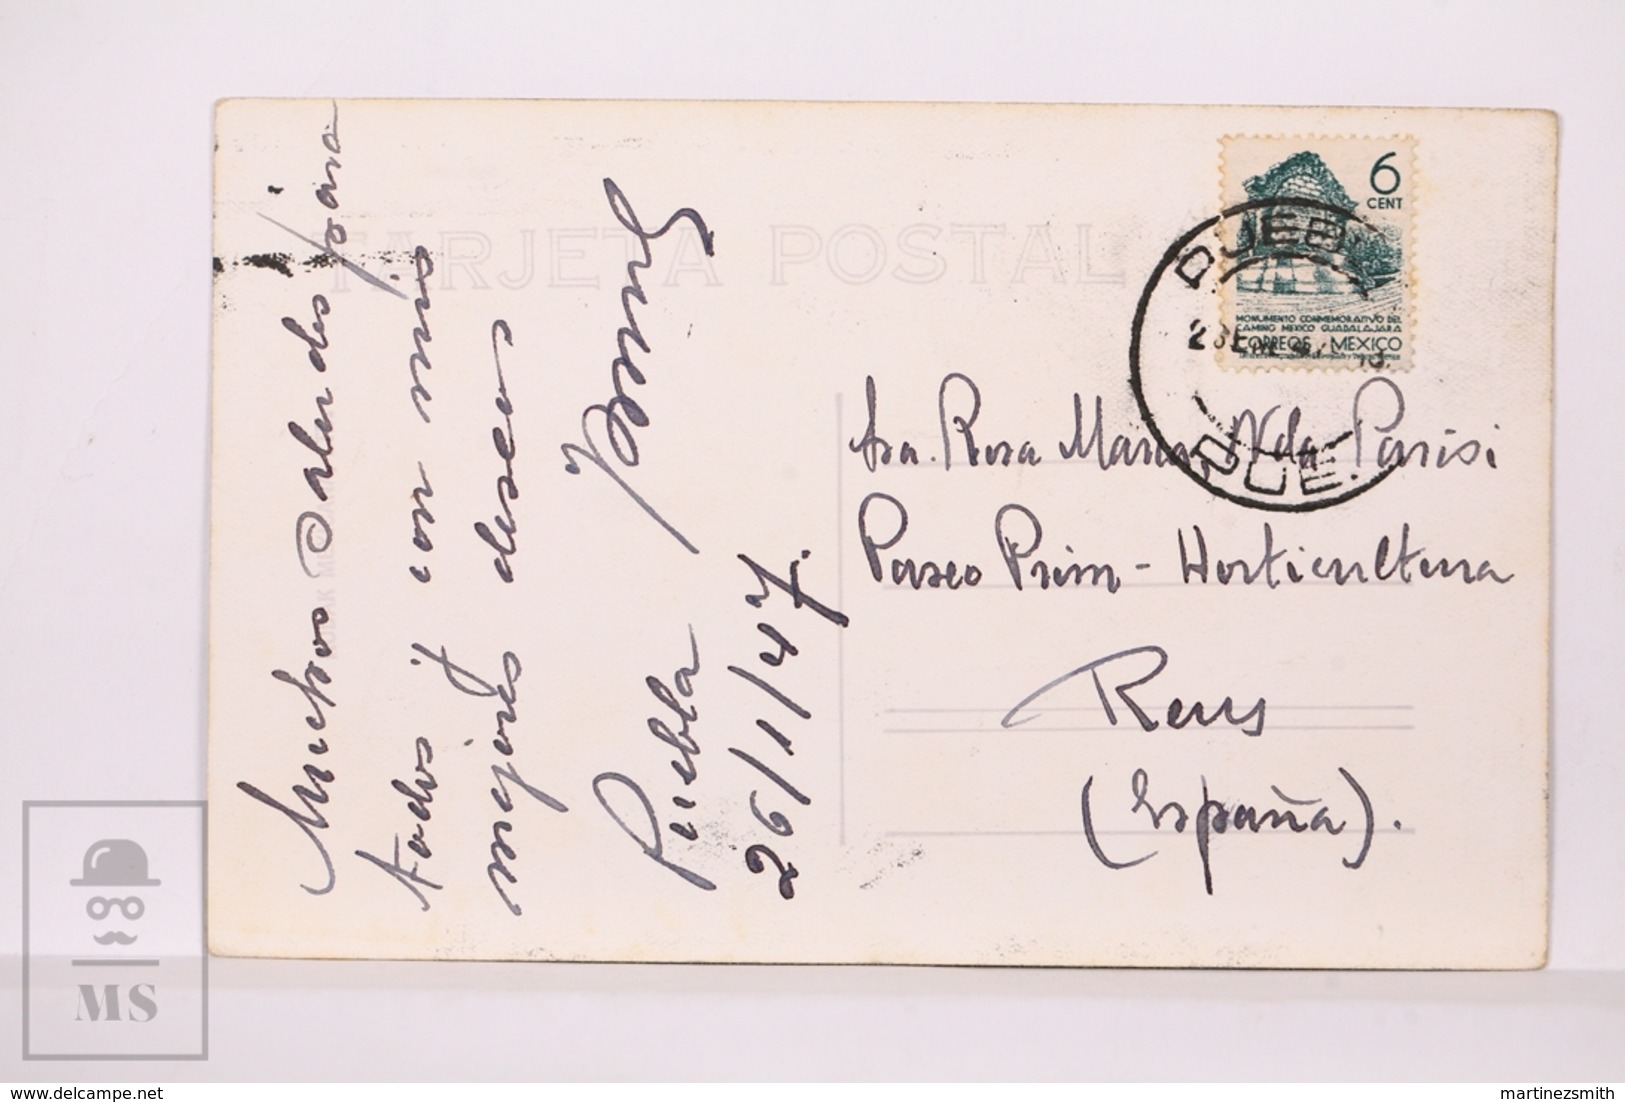 TARJETA POSTAL
Muchos saludos para
todos y con mis
mejores deseos
Puebla
26/1/47.
6
CENT
MONUMENTO CONMEMORATIVO DEL
CAMINO MEXICO GUADALAJARA
CORREOS MEXICO
PUEB.
PUE.
Sra. Rosa Maria, Vda Parisi
Paseo Prim - Horticultura
Reus
(España).
MS
martinezsmith